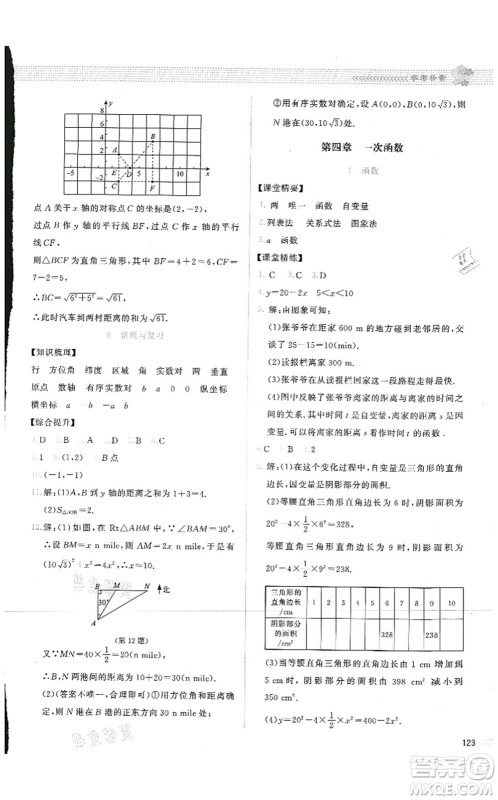 学考传奇
y
8
6
4
2
-5
O
5
10
x
A
B
E
D
F
C
点 A 关于 x 轴的对称点 C 的坐标是(2,-2),
过点 C 作 x 轴的平行线 BF,过点 B 作 y 轴的平行
线,两平行线交于点 F,
则△BCF 为直角三角形,其中 BF=6,CF=5,
∴BC=√(6²+5²)=√61.
∴此时汽车到两村距离的和为√61.
【知识梳理】
行 方位角 纬度 区域 角 实数对 两 垂直
原点 数轴 有序实数对 b a 0 0 纵坐标
横坐标 a -b -a b
【综合提升】
10.(-1,-1)
11.解:(1)A,B 之间的距离为 1+3=4.
(2)S△ABC=2.
12.解:(1)在 Rt△ABM 中,∵∠BAM=30°,
∴设 BM=x n mile,则 AM=2x n mile,
于是(10√3)²+x²=4x²,∴x=10.
B
M
N
北
30°
A
(第 12 题)
又∵MN=40×1/2=20(n mile),
∴M,N 两港间的距离为 20 n mile.
(2)(答案不唯一,合理即可)①用方位角和距离确
定,则 N 港在 B 处的正东方向 30 n mile 处.
②用有序实数对确定,设 A(0,0),则 B(0,10√3),
N 港的位置为(30,10√3).
第四章 一次函数
1 函数
【课堂精要】
1.两 唯一 函数 自变量
2.列表法 关系式法 图象法
3.a 函数
【课堂精练】
1.C 2.C 3.D
4.y=20-2x 5<x<10
5.解:(1)张爷爷在距离家 600 m 处碰到老邻居,交
谈了 25-15=10(min).
(2)读报栏距离家 300 m.
(3)张爷爷从家走到读报栏这一段路程走得最快.
(4)图中反映了张爷爷离家的距离 s 与离家的时
间 t 之间的关系.
6.C 7.B
(1)在这个变化过程中,自变量是三角形的直角
边长,因变量是阴影部分的面积.
(2)等腰直角三角形的直角边长为 6 时,阴影面积
20²-4×1/2×6²=328(cm²).
等腰直角三角形的直角边长为 9 时,阴影面积
20²-4×1/2×9²=238(cm²).
三角形的直角边长/cm 1 2 3 4 5 6 7 8 9 10
阴影部分的面积/cm² 328 238
(3)当等腰直角三角形的直角边长由 1 cm 增加到
5 cm 时,阴影部分的面积由 398 cm² 减小到
350 cm².
(4)y=20²-4×1/2x²=400-2x².
123